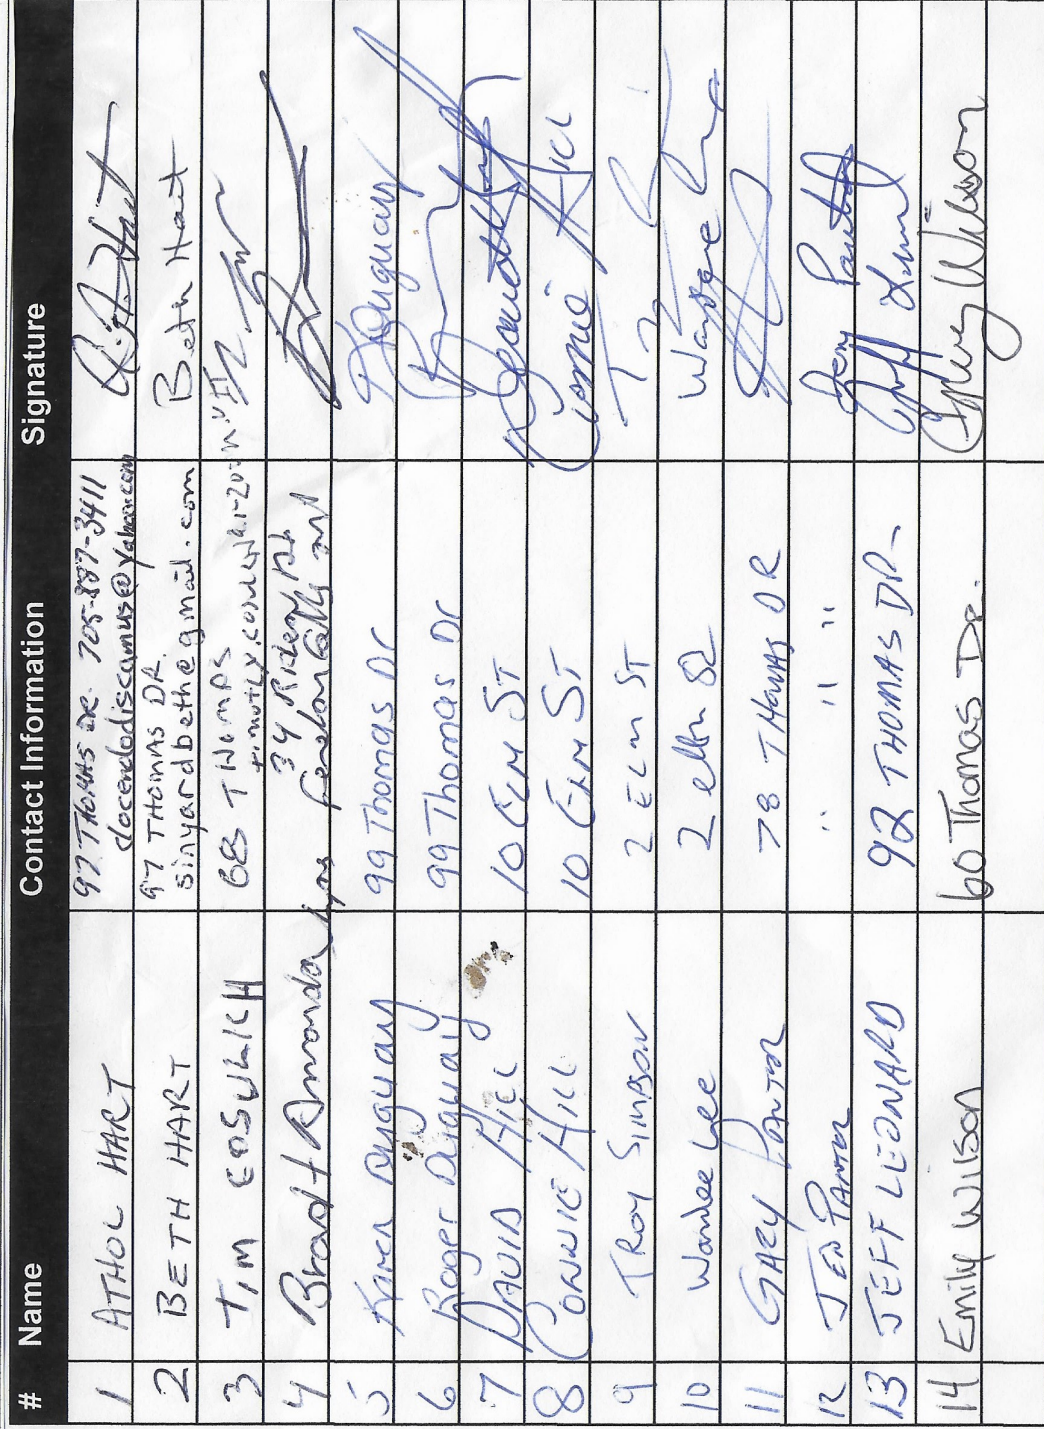 # Name Contact Information Signature
1 ATHOL HART 97 THOMAS DR. 705-887-3411
docendodiscamus@yahoo.com
2 BETH HART 97 THOMAS DR. Beth Hart
sinyardbeth@gmail.com
3 TIM COSULICH 68 THOMPS
4 Brad + Amanda Lyons 34
Fenelon Falls
5 Karen Duguay 99 Thomas Dr Duguay
6 Roger Duguay 99 Thomas Dr
7 DAVID HILL 10 ELM ST
8 CONNIE HILL 10 ELM ST Connie Hill
9 TROY SIMPSON 2 ELM ST
10 Wandee Lee 2 Elm St Wandee
11 GARY PANTER 78 THOMAS DR
12 JEN PANTER " " "
13 JEFF LEONARD 92 THOMAS DR
14 Emily Wilson 60 Thomas Dr. Wilson